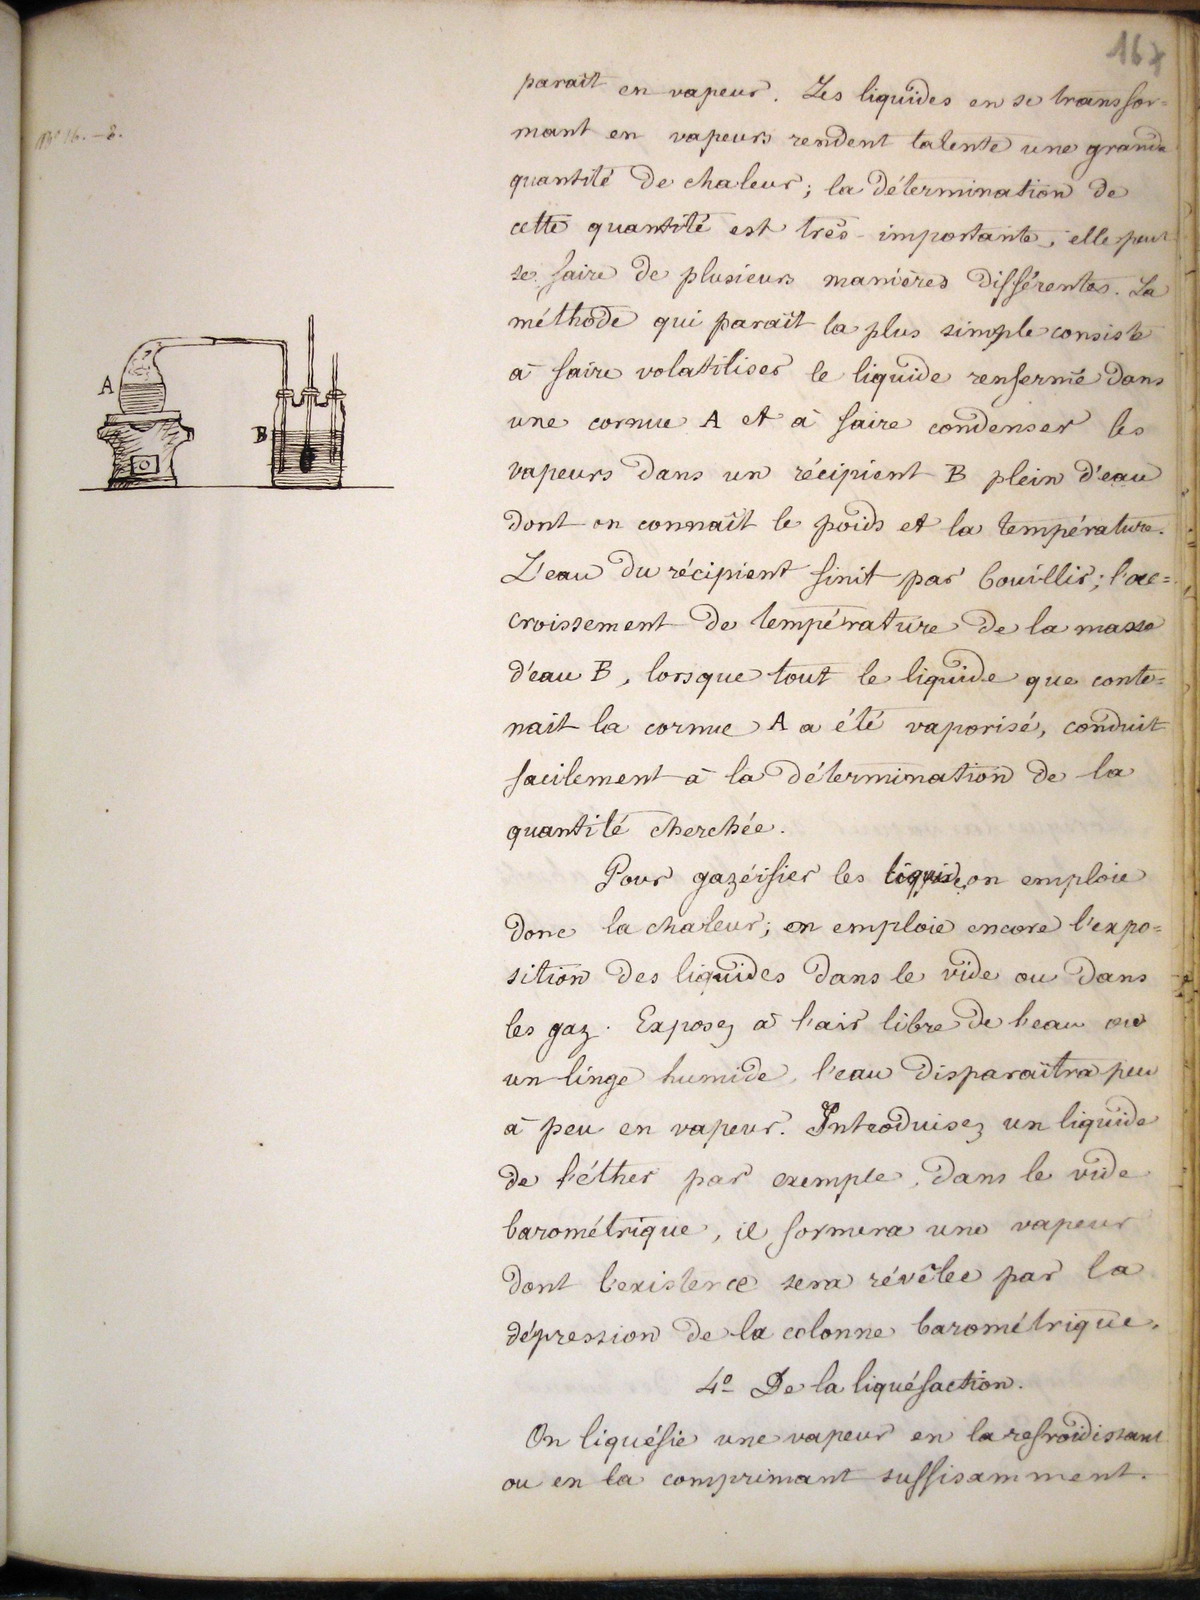 167
N° 16. - 8.
parait en vapeur. Les liquides en se transfor=
mant en vapeurs rendent latente une grande
quantité de chaleur; la détermination de
cette quantité est très importante, elle peut
se faire de plusieurs manières différentes. La
méthode qui parait la plus simple consiste
à faire volatiliser le liquide renfermé dans
une cornue A et à faire condenser les
vapeurs dans un récipient B plein d'eau
dont on connait le poids et la température.
L'eau du récipient finit par bouillir; l'ac=
croissement de température de la masse
d'eau B, lorsque tout le liquide que conte=
nait la cornue A a été vaporisé, conduit
facilement à la détermination de la
quantité cherchée.
Pour gazéifier les on emploie
donc la chaleur; on emploie encore l'expo=
sition des liquides dans le vide ou dans
les gaz. Exposez à l'air libre de l'eau ou
un linge humide, l'eau disparaîtra peu
à peu en vapeur. Introduisez un liquide
de l'éther par exemple, dans le vide
barométrique, il formera une vapeur
dont l'existence sera révélée par la
dépression de la colonne barométrique.
4° De la liquéfaction.
On liquéfie une vapeur en la refroidissant
ou en la comprimant suffisamment.
A
B